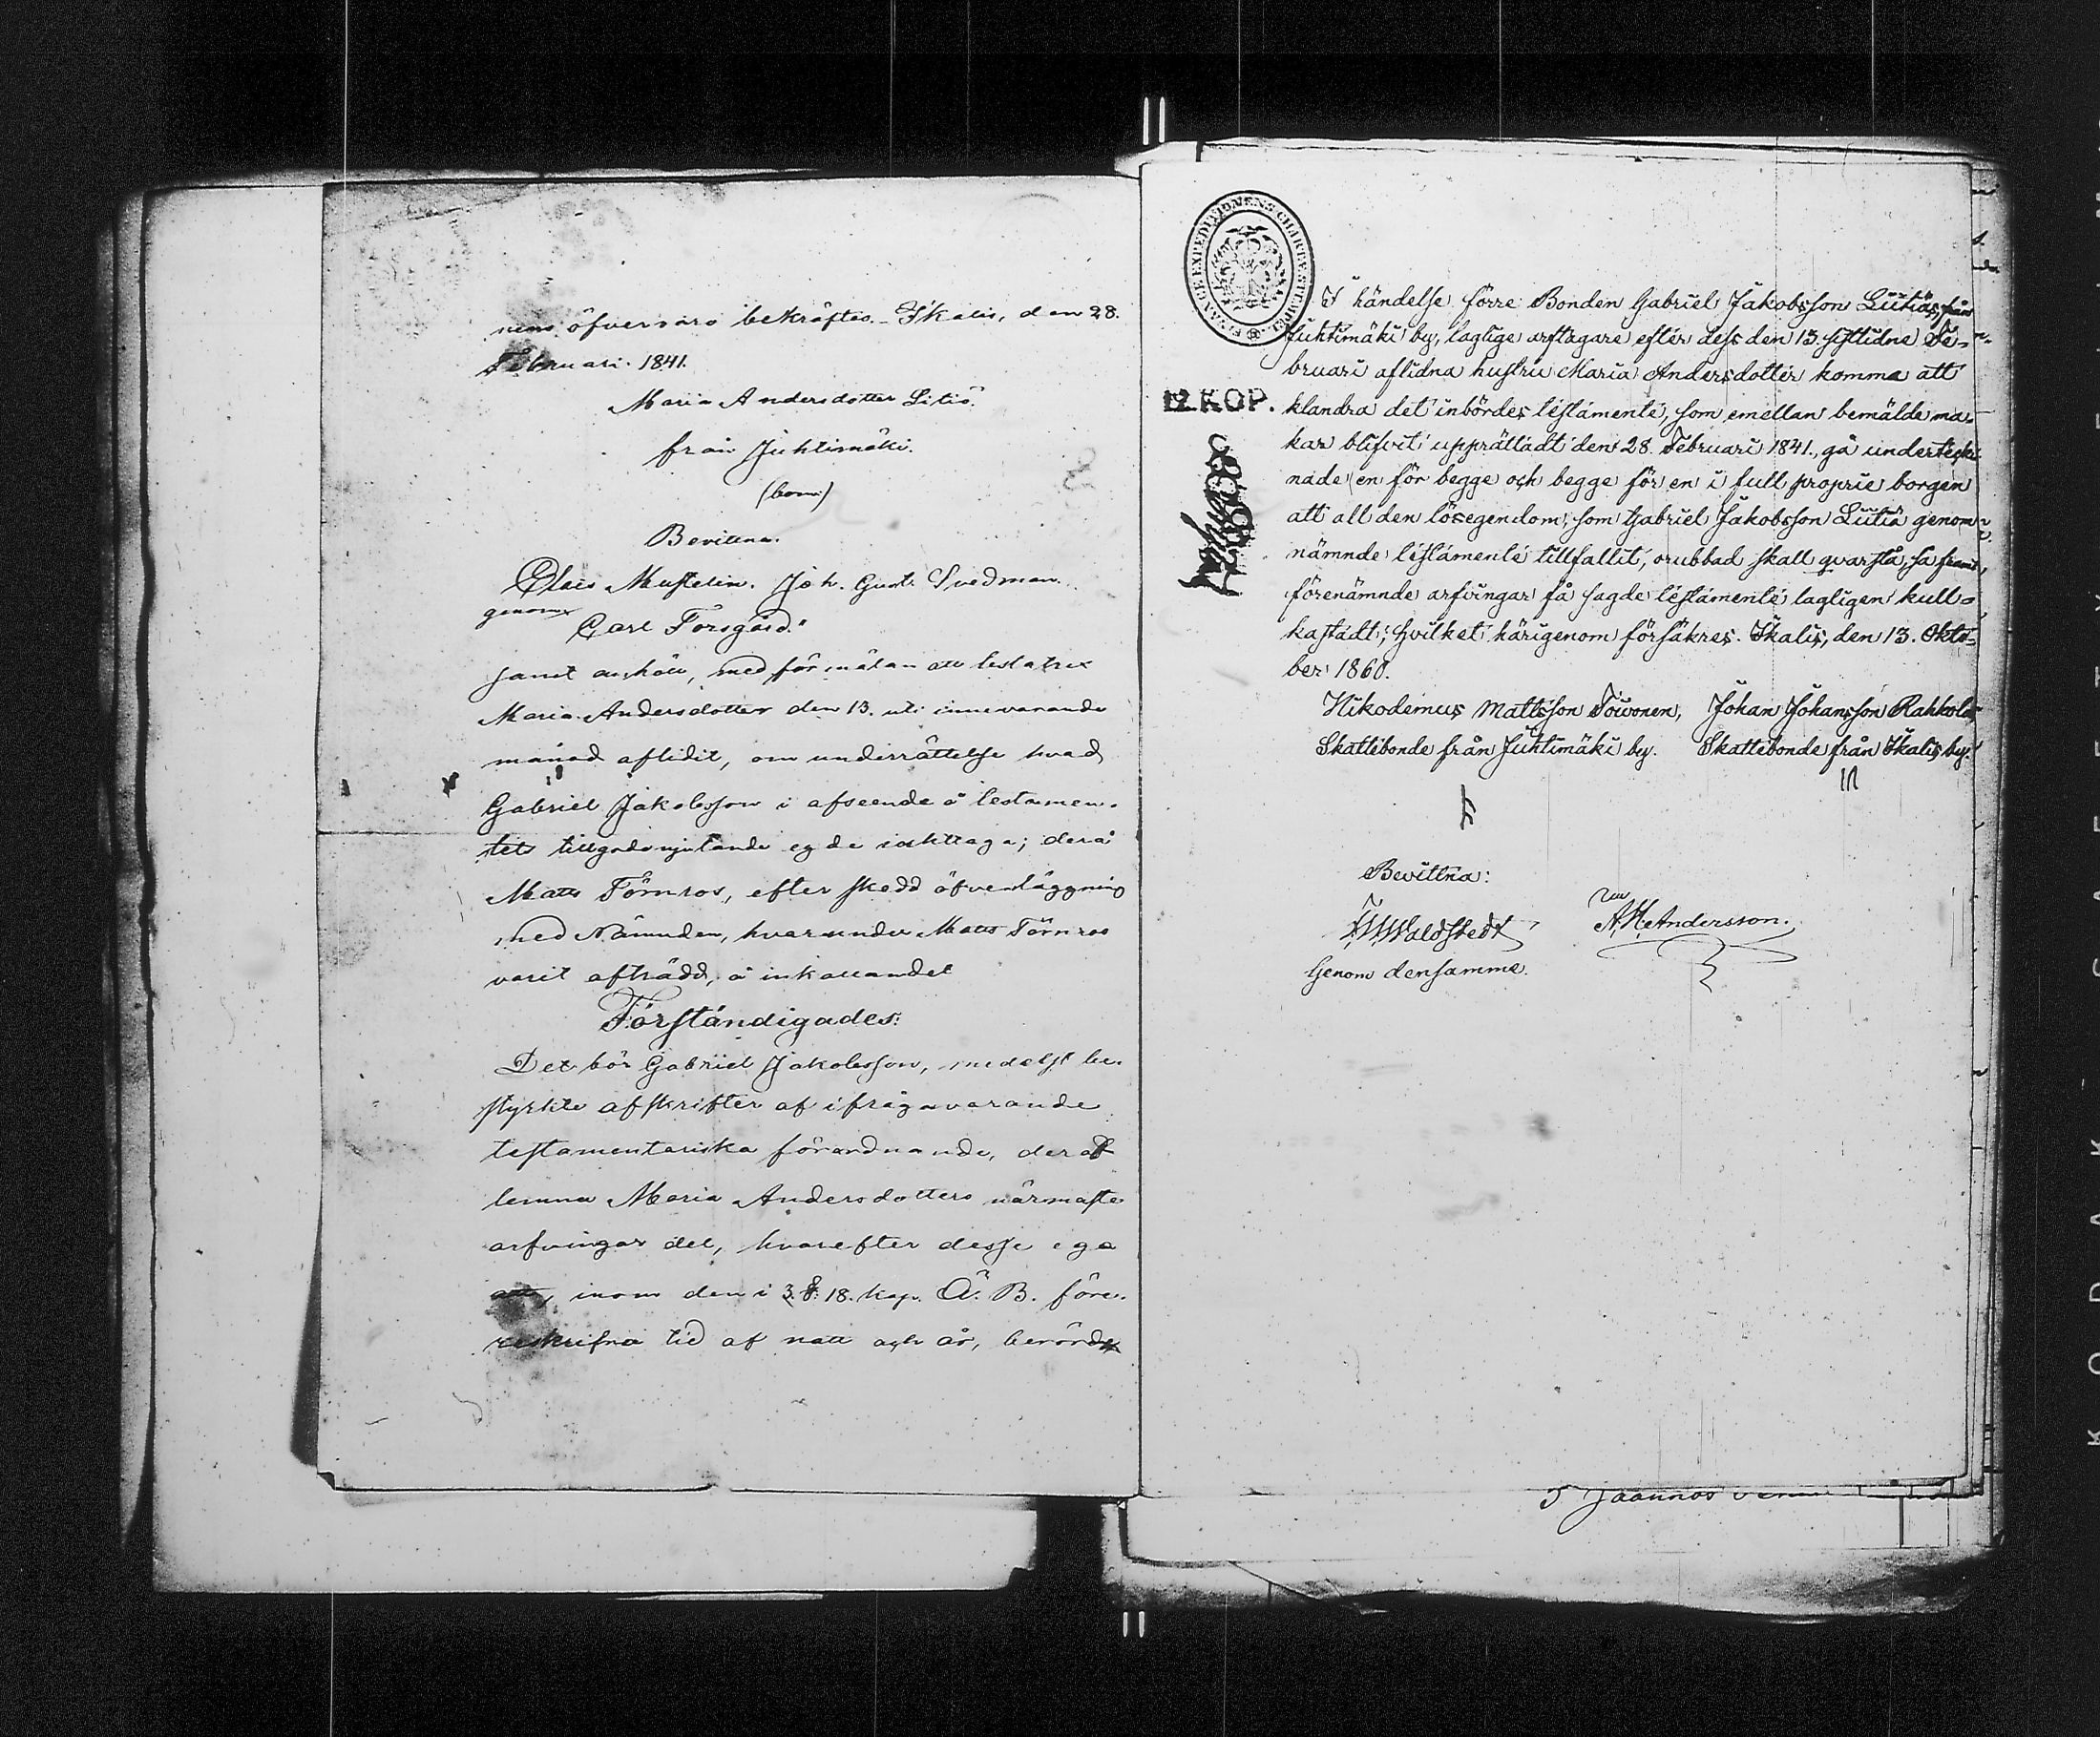 nens öfvervaro bekräftas. Ikalis, den 28.
Februari 1841.
Maria Andersdotter Litiö.
från Juhtimäki.
(bom:)
Bevittna.
Clais Mustelin. Joh. Gust. Svedman.
genom
Carl Forsgård."
samt anhöll, med förmälan att testatrix
Maria Andersdotter den 13. uti innevarande
månad aflidit, om underrättelse hvad
Gabriel Jakobsson i afseende å testamen-
tets tillgodonjutande egde iakttaga; derå
Matts Törnros, efter skedd öfverläggning
med Nämnden, hvarunder Matts Törnros
varit afträdd, å inkallandet
Förständigades:
Det bör Gabriel Jakobsson, medelst be-
styrkte afskrifter af ifrågavarande
testamentariska förordnande, deraf
lemna Maria Andersdotters närmaste
arfvingar del, hvarefter desse ega
att, inom den i 3. §. 18. kap. Ä. B. före-
reskrifna tid af natt och år, berörde
FINANCE EXPEDITIONENS CHARTÆ STEMPEL
12. KOP.
I händelse förre Bonden Gabriel Jakobsson Liitiäs, från
Juhtimäki by, laglige arftagare efter dess den 13. sistlidne Fe-
bruari aflidna hustru Maria Andersdotter komma att
klandra det inbördes testamente, som emellan bemälde ma-
kar blifvit upprättadt den 28. Februari 1841., gå underteck-
nade en för begge och begge för en i full proprie borgen
att all den lösegendom, som Gabriel Jakobsson Liitiä genom
nämnde testamente tillfallit, orubbad skall qvarstå, så framt,
förenämnde arfvingar få sagde testamente lagligen kull-
kastadt; hvilket härigenom försäkres. Ikalis, den 13. Okto-
ber 1860.
Nikodemus Mattsson Toivonen, Johan Johansson Rahkola
Skattebonde från Juhtimäki by. Skattebonde från Ikalis by.
Bevittna:
Waldstedt A. H. Andersson.
Genom densamme.
5 Jaannos
KODAK SAFETY FILM